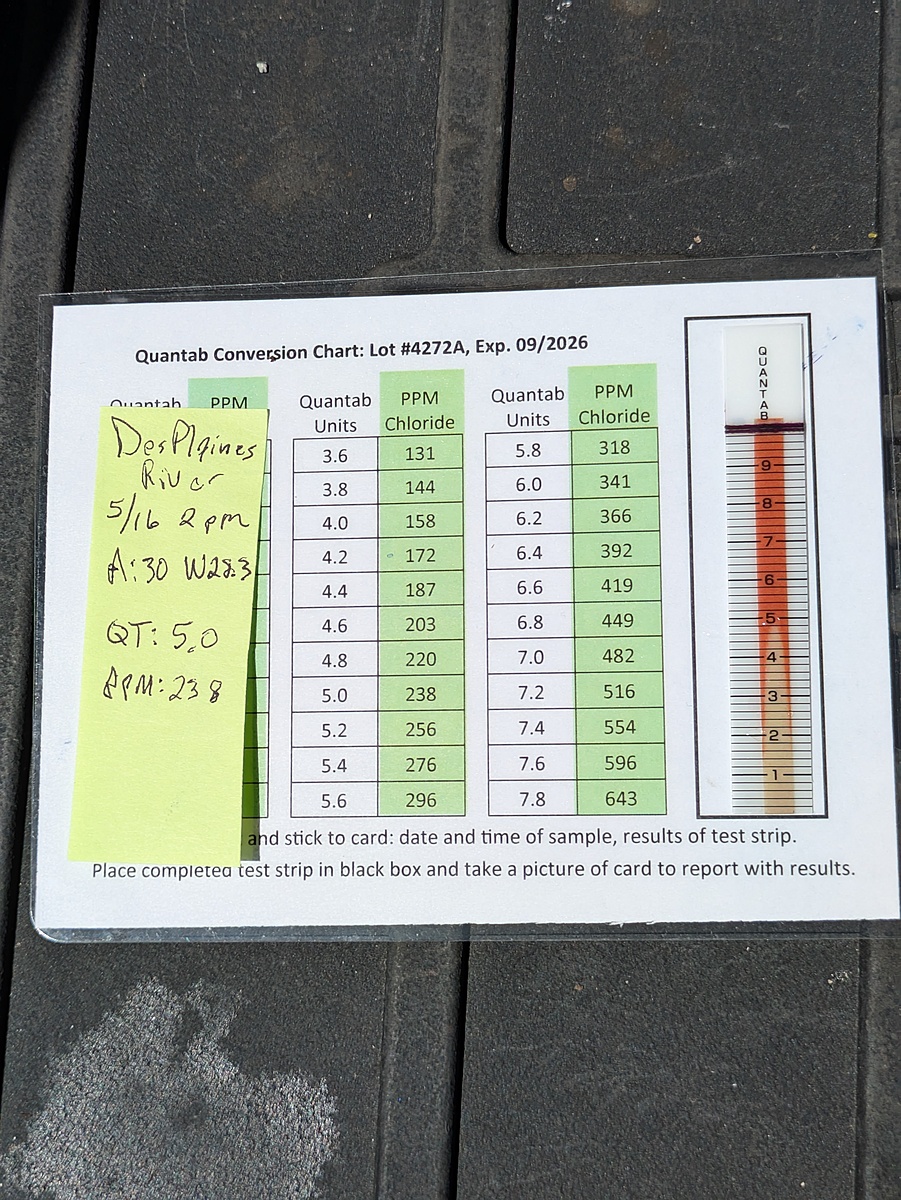 Quantab Conversion Chart: Lot #4272A, Exp. 09/2026
Quantab PPM
Quantab Units PPM Chloride
3.6 131
3.8 144
4.0 158
4.2 172
4.4 187
4.6 203
4.8 220
5.0 238
5.2 256
5.4 276
5.6 296
Quantab Units PPM Chloride
5.8 318
6.0 341
6.2 366
6.4 392
6.6 419
6.8 449
7.0 482
7.2 516
7.4 554
7.6 596
7.8 643
DesPlaines
River
5/16 2 pm
A:30 W28.3
QT: 5.0
PPM: 238
QUANTAB
9
8
7
6
5
4
3
2
1
and stick to card: date and time of sample, results of test strip.
Place completed test strip in black box and take a picture of card to report with results.